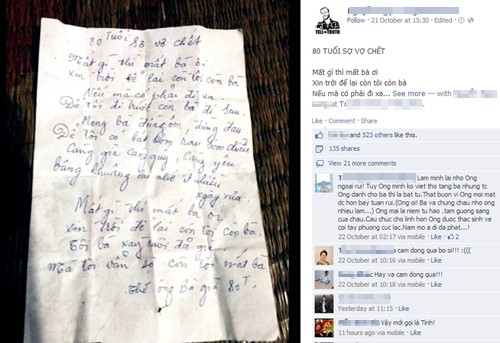 80 TUỔI SỢ VỢ CHẾT
Mất gì thì mất bà ơi
Xin trời để lại còn tôi còn bà
Nếu mà có phải đi xa
Để tôi đi trước còn bà đi sau.
Mong bà đừng ốm, đừng đau
Để tôi có bát cơm rau sớm chiều
Càng già càng quý, càng yêu
ngày xưa
Mất gì thì mất bà ơi
Xin trời để lại còn tôi còn bà.
Tôi bà nay tuổi đã già
Mà tôi vẫn sợ còn tôi mất bà
80T.
TELL the TRUTH
Follow · 21 October at 15:30 · Edited ·
80 TUỔI SỢ VỢ CHẾT
Mất gì thì mất bà ơi
Xin trời để lại còn tôi còn bà
Nếu mà có phải đi xa... See more — with
at
Like · Comment · Share
and 523 others like this.
135 shares
View 21 more comments
Lam minh lai nho Ong
ngoai rui! Tuy Ong minh ko viet tho tang ba nhung tc
Ong danh cho ba thi la bat tu..That buon vi Ong moi mat
dc hon bay tuan rui.(Ong oi! Ba va chung chau nho ong
nhieu lam...) Ong mai la niem tu hao .tam guong sang
cua chau.Cau chuc cho linh hon Ong duoc thac sinh ve
coi tay phuong cuc lac.Nam mo a di da phat...!
22 October at 02:17 via mobile · Like · 2
cam dong qua bo oi!!! :(((
22 October at 10:16 via mobile · Like
Hay va cam dong qua!!!
22 October at 10:18 via mobile · Like
Yesterday at 11:15 · Like
Vậy mới gọi là Tình!
11 hours ago via mobile · Like